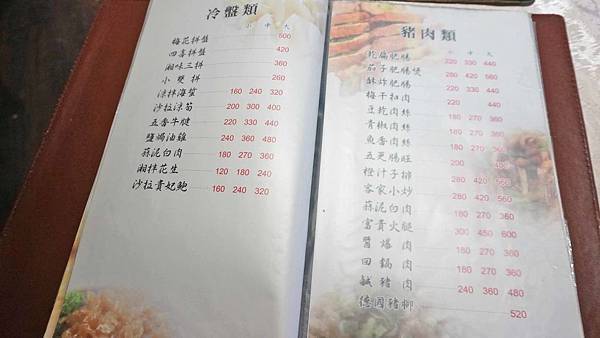 冷盤類
小 中 大
梅花拼盤 500
四喜拼盤 420
湘味三拼 360
小雙拼 260
涼拌海蜇 160 240 320
沙拉涼筍 200 300 400
五香牛腱 220 330 440
鹽焗油雞 240 360 480
蒜泥白肉 180 270 360
湘拌花生 120 180 240
沙拉貴妃鮑 160 240 320
豬肉類
小 中 大
乾扁肥腸 220 330 440
茄子肥腸煲 280 420 560
酥炸肥腸 220 330 440
梅干扣肉 220 440
豆乾肉絲 180 270 360
青椒肉絲 180 270 360
魚香肉絲 180 270 360
五更腸旺 200 400
橙汁子排 180 270 360
客家小炒 220 330 440
蒜泥白肉 180 270 360
富貴火腿 300 450 600
醬爆肉 180 270 360
回鍋肉 180 270 360
鹹豬肉 240 360 480
德國豬腳 520